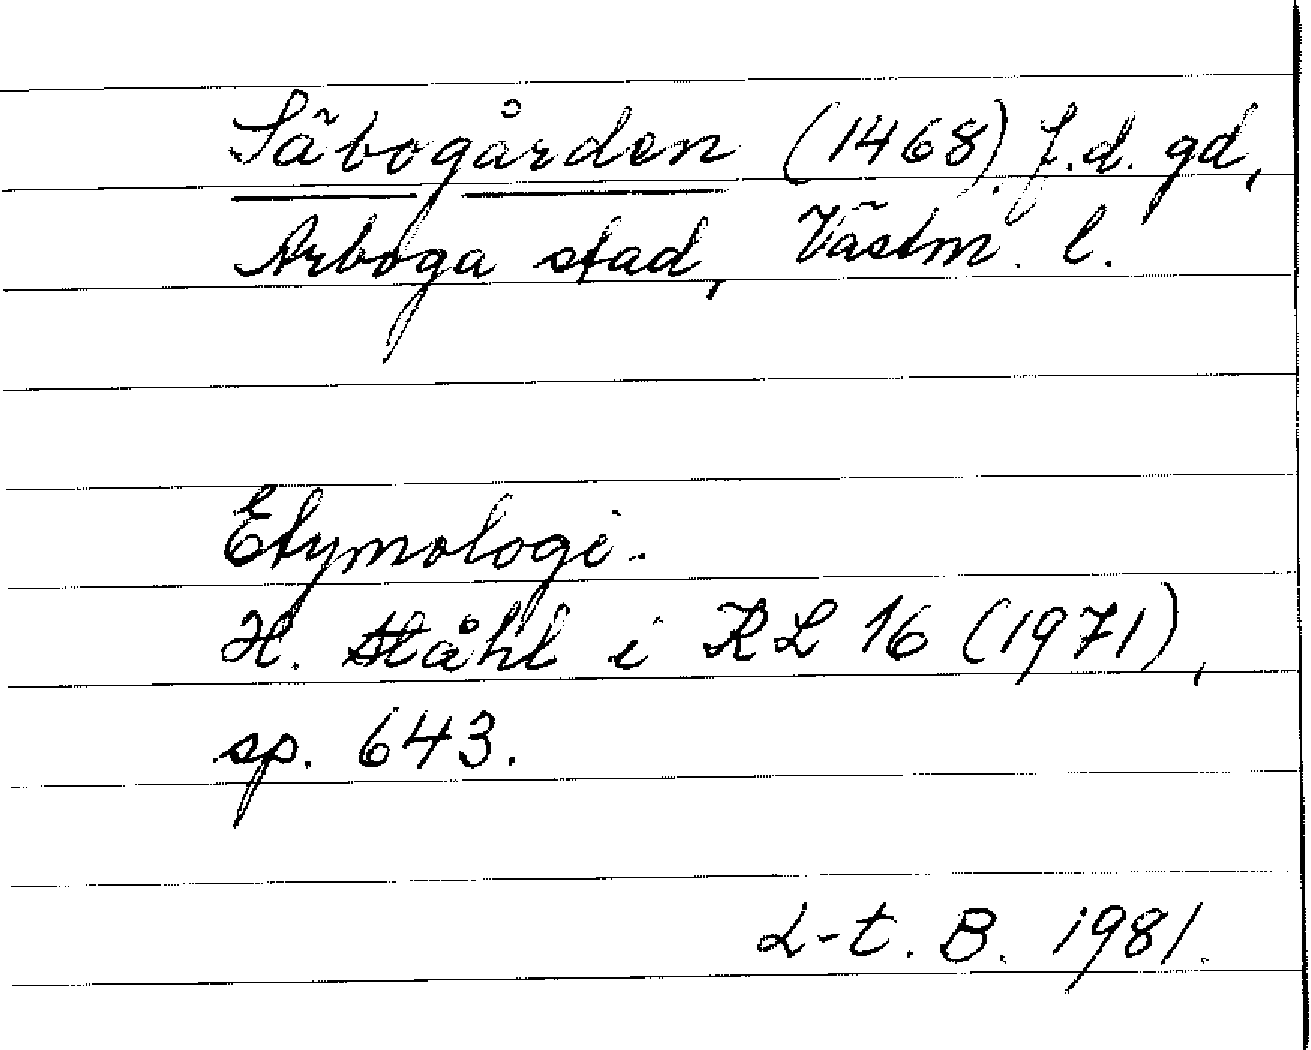 Säbogården (1468) f.d. gd,
Arboga stad, Västm. l.
Etymologi.
H. Ståhl i KL 16 (1971),
sp. 643.
L-t. B. 1981.